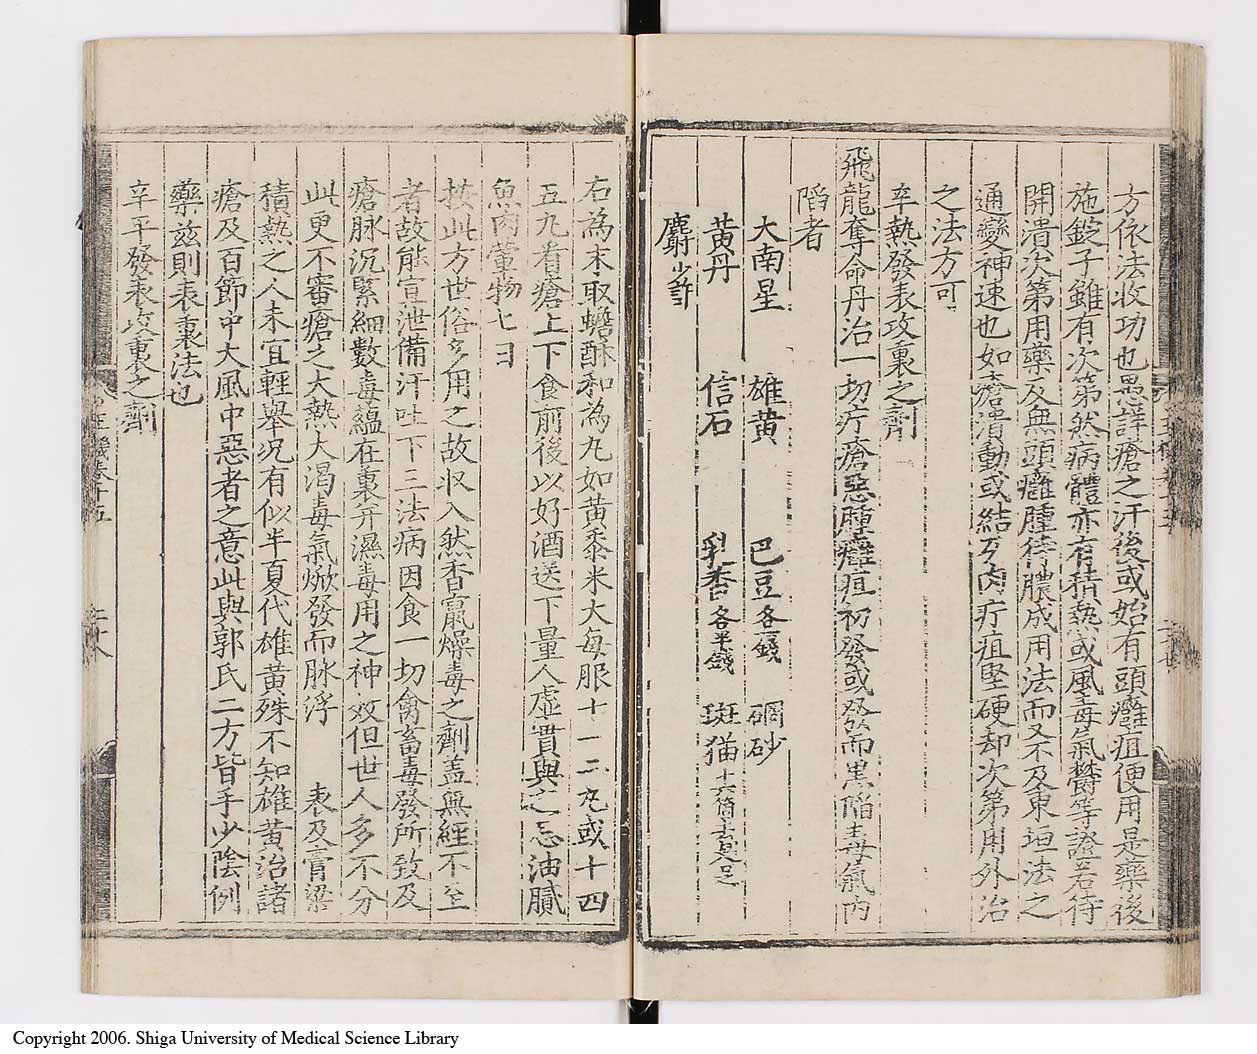 方依法收功也愚詳瘡之汗後或始有頭癰疽便用是藥後
施錠子雖有次第然病體亦有積熱或風毒氣欝等證若待
開潰次第用藥及無頭癰腫待膿成用法而又不及東垣法之
通變神速也如瘡潰動或結歹肉疔疽堅硬却次第用外治
之法方可
辛熱發表攻裏之劑
飛龍奪命丹治一切疔瘡惡腫癰疽初發或發而黑陷毒氣内
陷者
大南星 雄黃 巴豆各一錢 硇砂
黃丹 信石 乳香各半錢 斑猫十六箇去足
麝少許
右為末取蟾酥和為丸如黃黍米大每服十一二丸或十四
五丸看瘡上下食前後以好酒送下量人虛實與之忌油膩
魚肉葷物七日
按此方世俗多用之故収入然香竄燥毒之劑盖無經不至
者故能宣泄備汗吐下三法病因食一切禽畜毒發所致及
瘡脉沉緊細數毒藴在裏并濕毒用之神效但世人多不分
此更不審瘡之大熱大渴毒氣焮發而脉浮 表及膏粱
積熱之人未宜輕舉况有似半夏代雄黃殊不知雄黃治諸
瘡及百節中大風中惡者之意此與郭氏二方皆手少陰例
藥兹則表裏法也
辛平發表攻裏之劑
卷十五